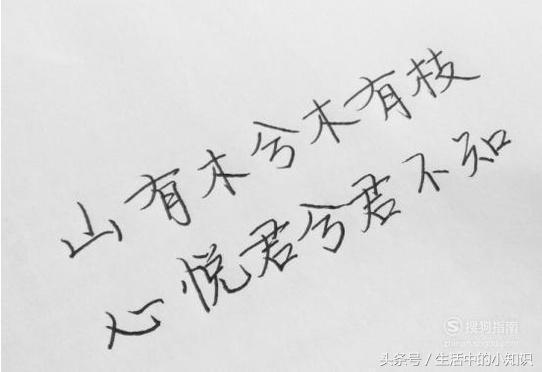 山有木兮木有枝
心悦君兮君不知
搜狗指南
头条号 / 生活中的小知识